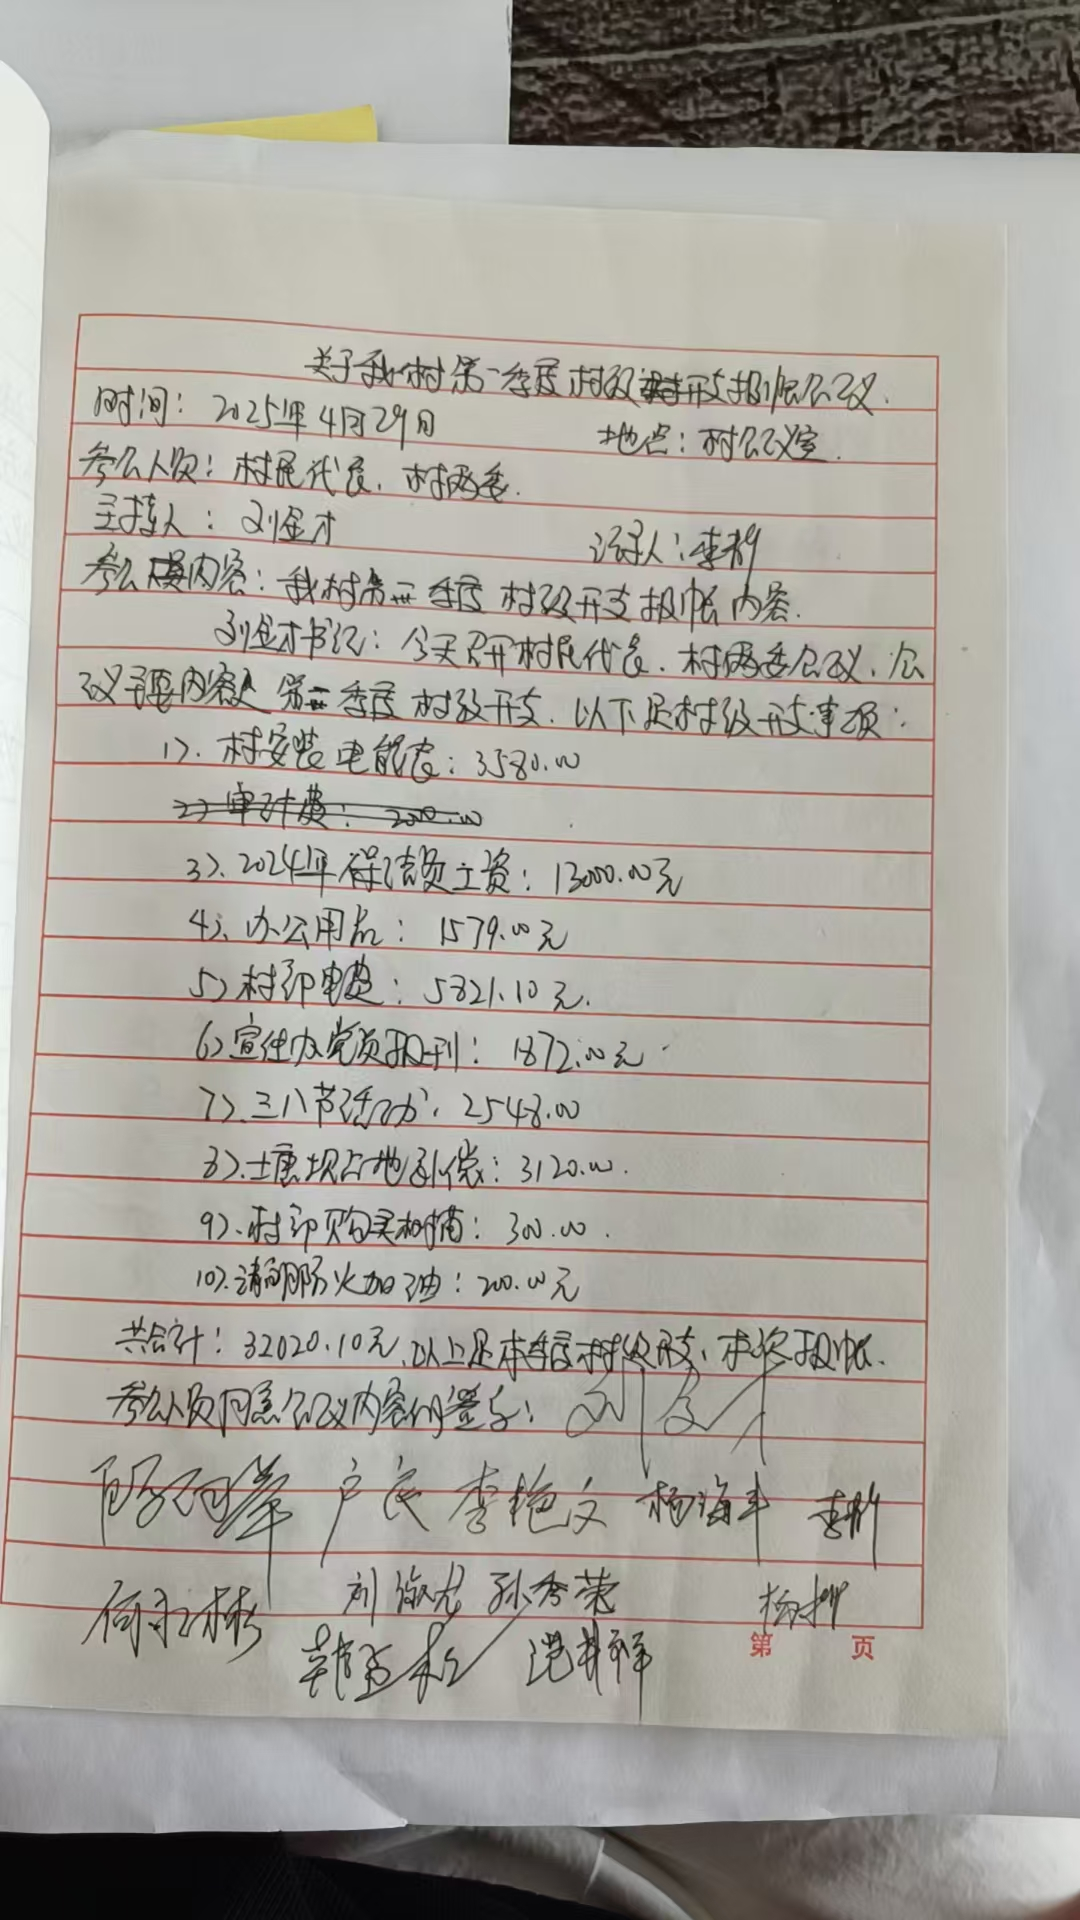 关于我村第一季度村级开支报帐会议.
时间：2025年4月29日 地点：村会议室.
参会人员：村民代表、村两委.
主持人：刘金才 记录人：李彬
参会内容：我村第一季度村级开支报帐内容.
刘金才书记：今天召开村民代表、村两委会议、会
议主要内容是第一季度村级开支.以下是村级开支事项：
1）.村安装电能表：3580.00
2）审计费：2000.00
3）、2024年保洁员工资：13000.00元
4）、办公用品：1579.00元
5）村部电费：5821.10元.
6）宣传办党员报刊：1872.00元
7）、三八节活动、2548.00
8）、土塘坝占地补偿：3120.00.
9）.村部购买树苗：300.00.
10）.清明防火加油：200.00元
共合计：32020.10元、以上是本季度村级开支、本次报帐.
参会人员同意会议内容的签字：刘金才
卢良 李艳文 杨海丰 李彬
刘淑尤 孙秀荣
第 页